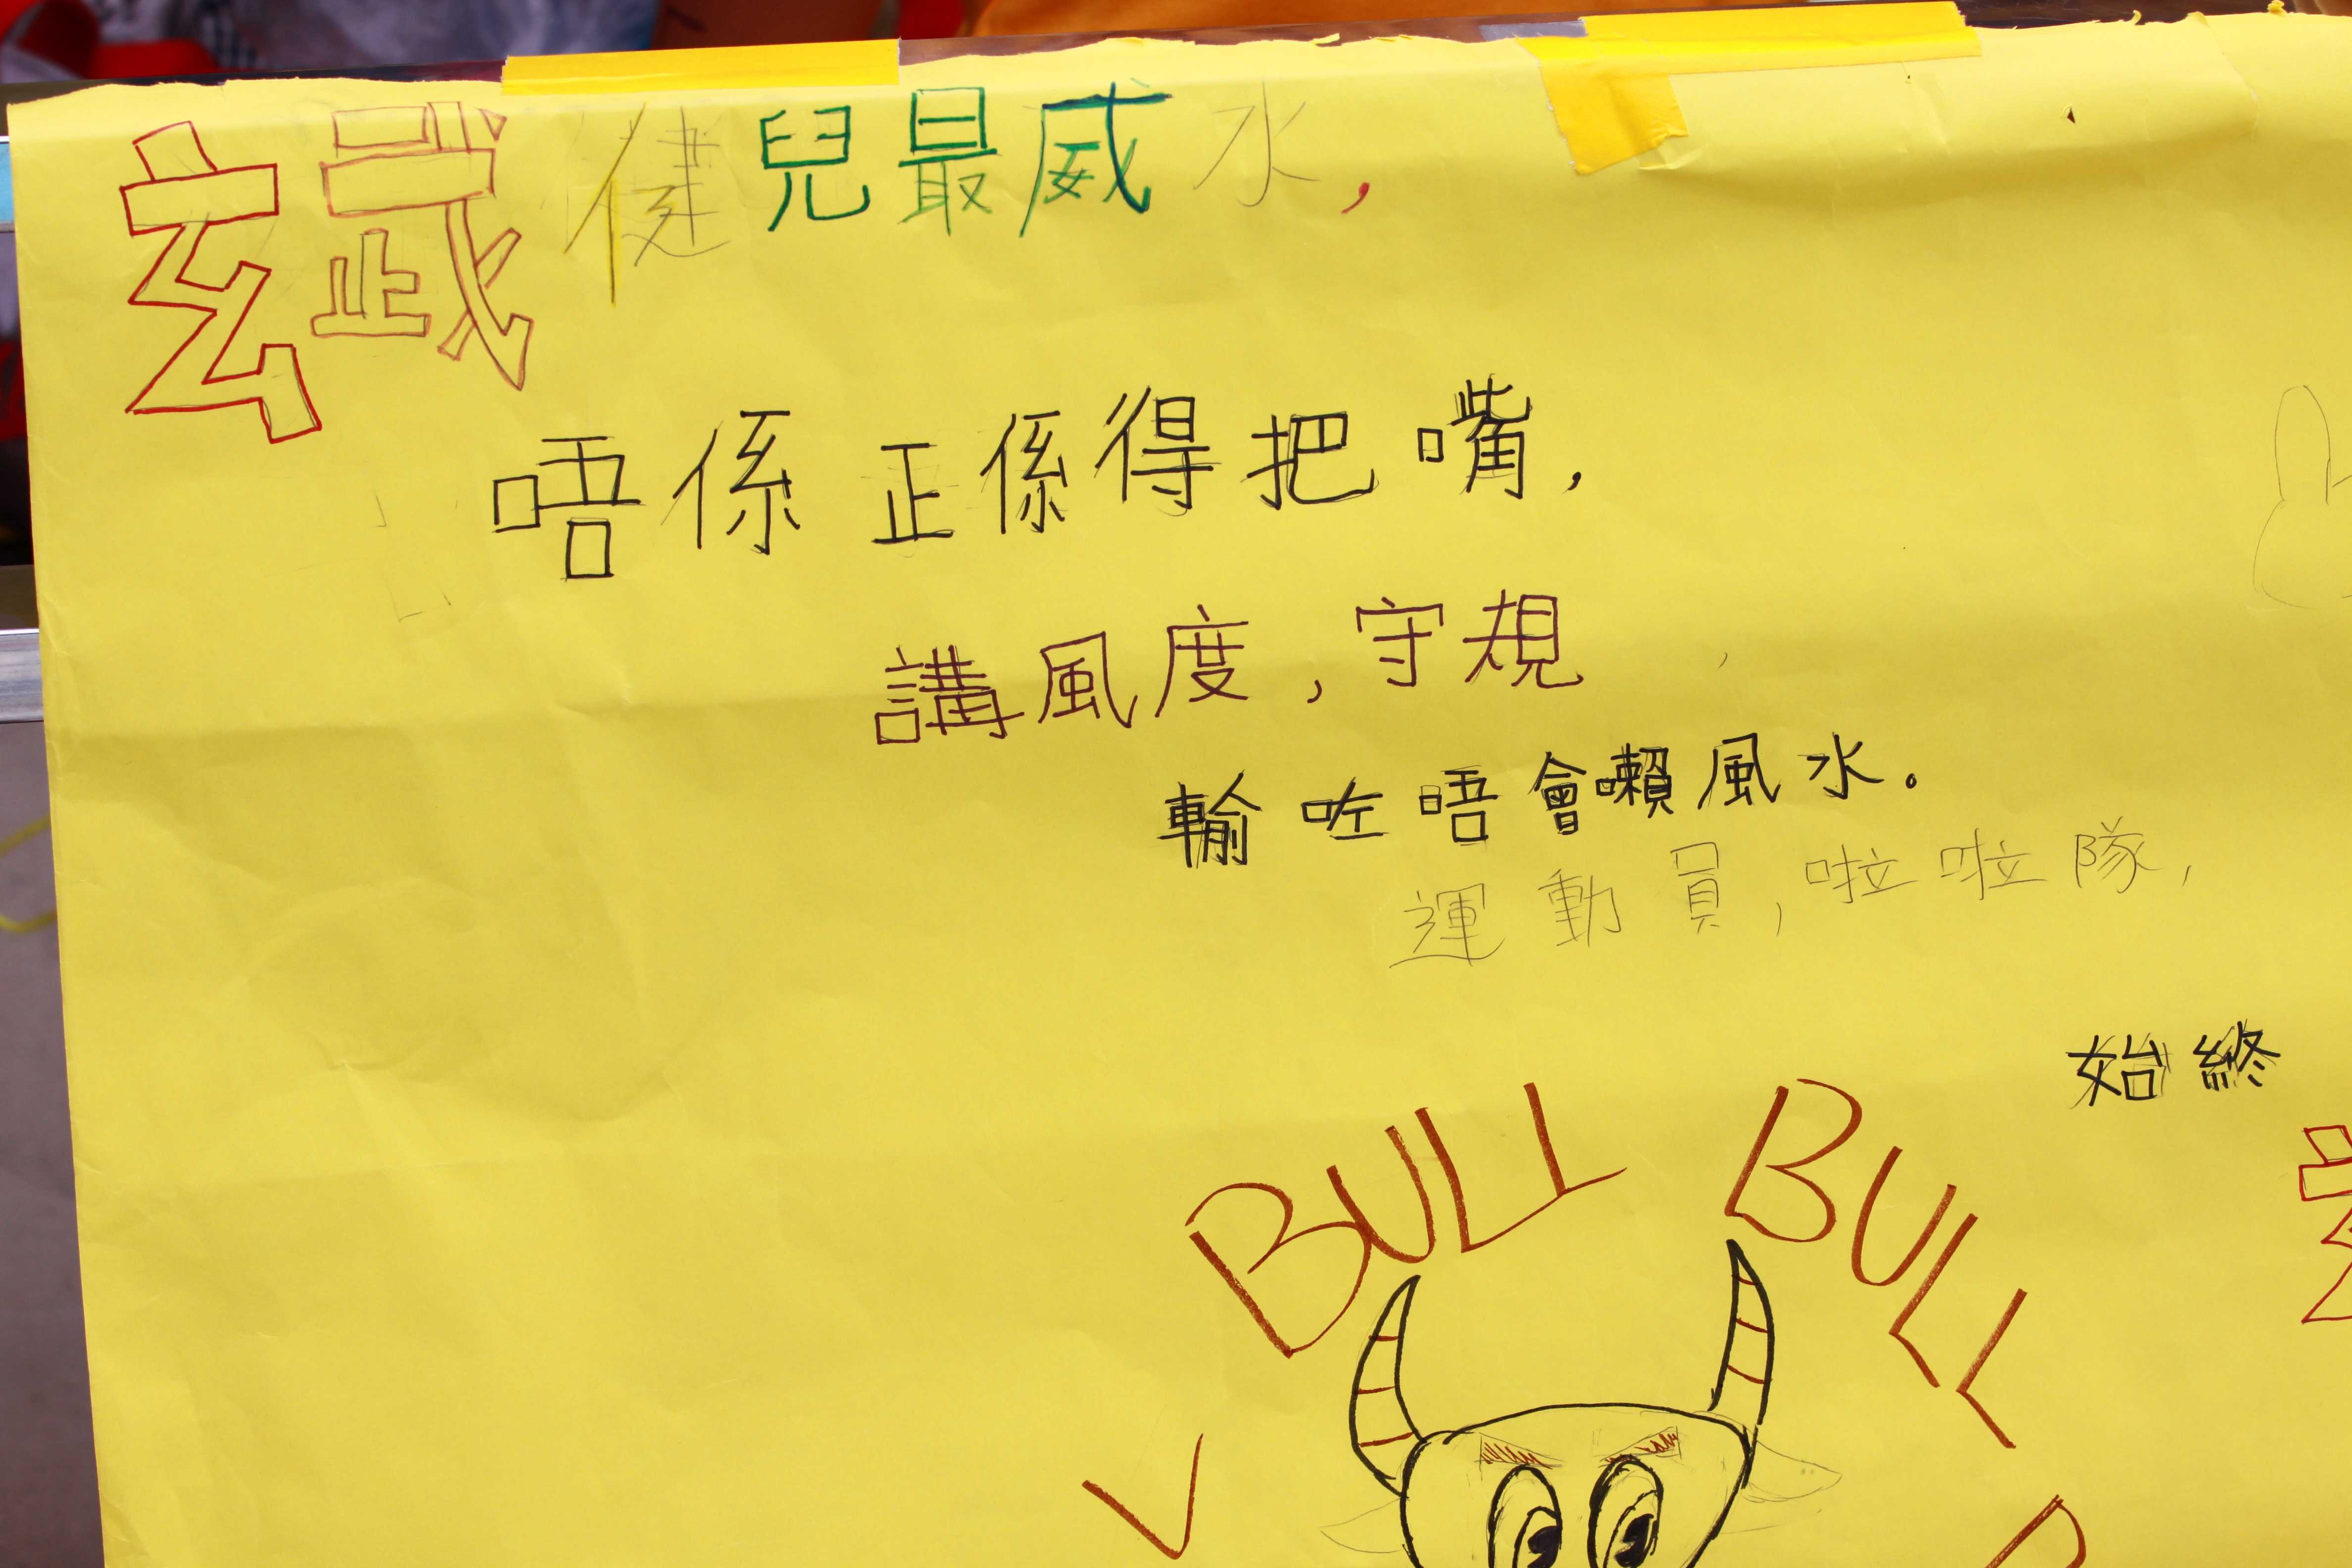 玄武健兒最威水,
唔係正係得把嘴,
講風度,守規
輸咗唔會嚹風水。
運動員,啦啦隊,
始終
BULL BULL
V